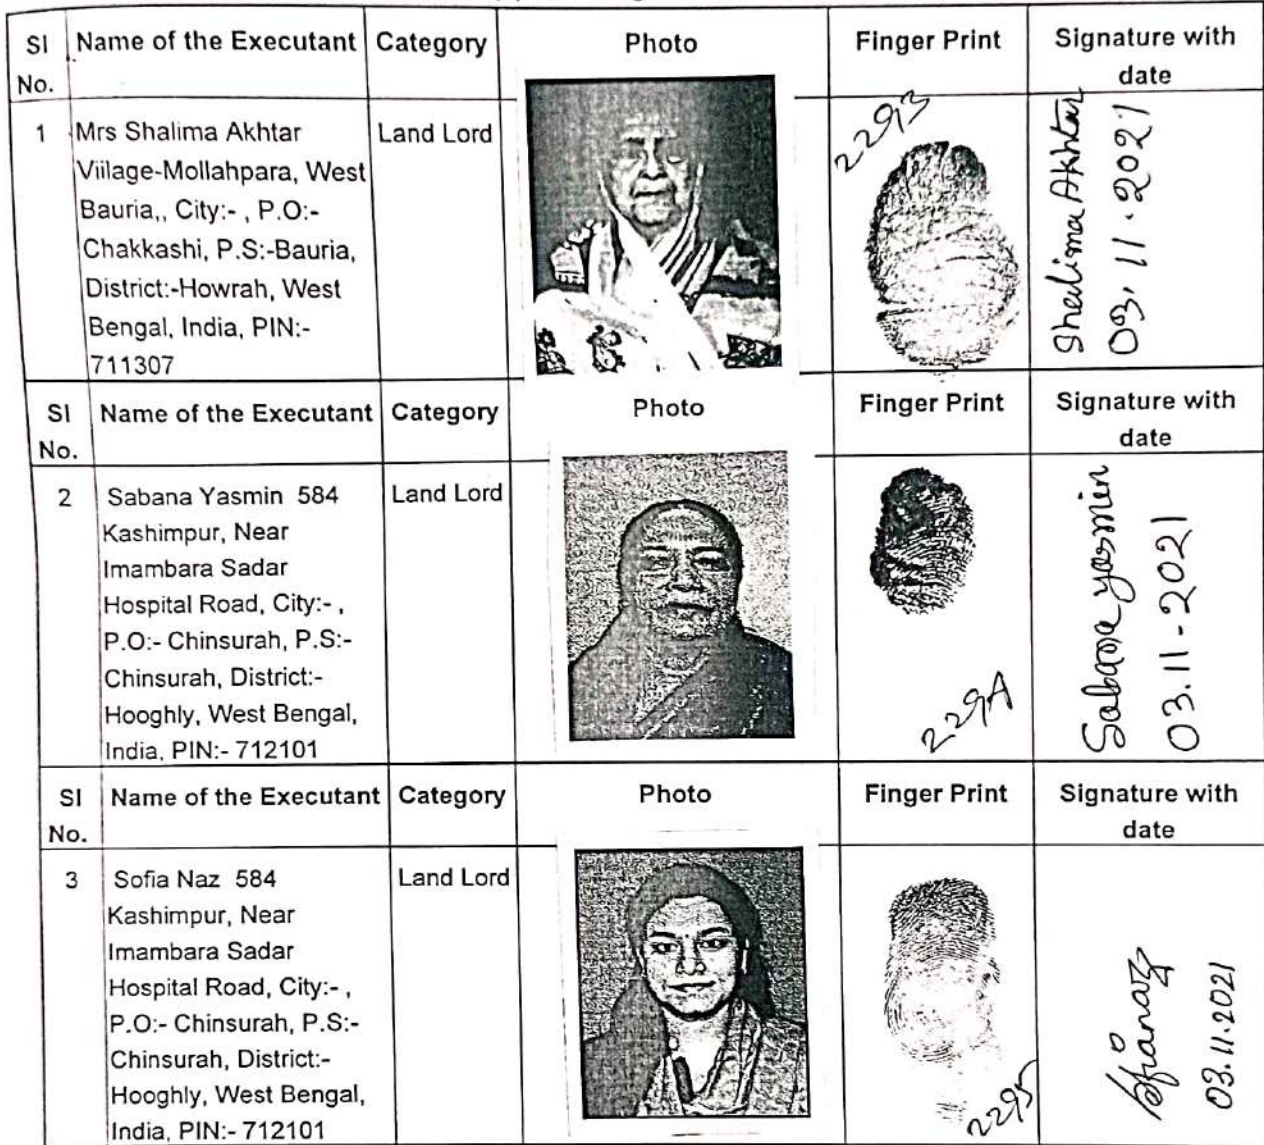 Sl No. Name of the Executant Category Photo Finger Print Signature with date
1 Mrs Shalima Akhtar Land Lord
Viilage-Mollahpara, West
Bauria,, City:- , P.O:-
Chakkashi, P.S:-Bauria,
District:-Howrah, West
Bengal, India, PIN:-
711307
2293
Shalima Akhtar
03.11.2021
Sl No. Name of the Executant Category Photo Finger Print Signature with date
2 Sabana Yasmin 584 Land Lord
Kashimpur, Near
Imambara Sadar
Hospital Road, City:- ,
P.O:- Chinsurah, P.S:-
Chinsurah, District:-
Hooghly, West Bengal,
India, PIN:- 712101
Sabana yasmin
03.11-2021
Sl No. Name of the Executant Category Photo Finger Print Signature with date
3 Sofia Naz 584 Land Lord
Kashimpur, Near
Imambara Sadar
Hospital Road, City:- ,
P.O:- Chinsurah, P.S:-
Chinsurah, District:-
Hooghly, West Bengal,
India, PIN:- 712101
2295
03.11.2021